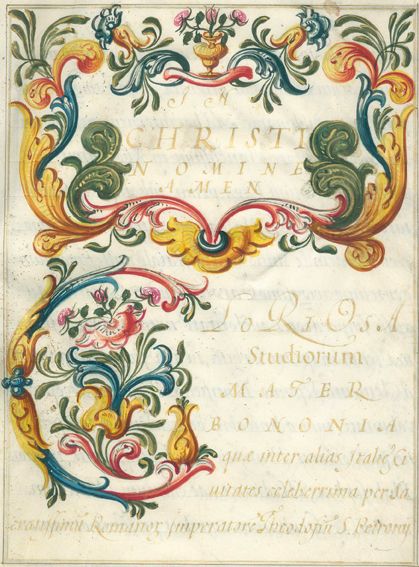 IN
CHRISTI
NOMINE
AMEN
GLORIOSA
Studiorum
MATER
BONONIA
quæ inter alias Italiæ Ci
uitates celeberrima per Sa
Imperatorẽ Theodosiũ S. Petroniũ